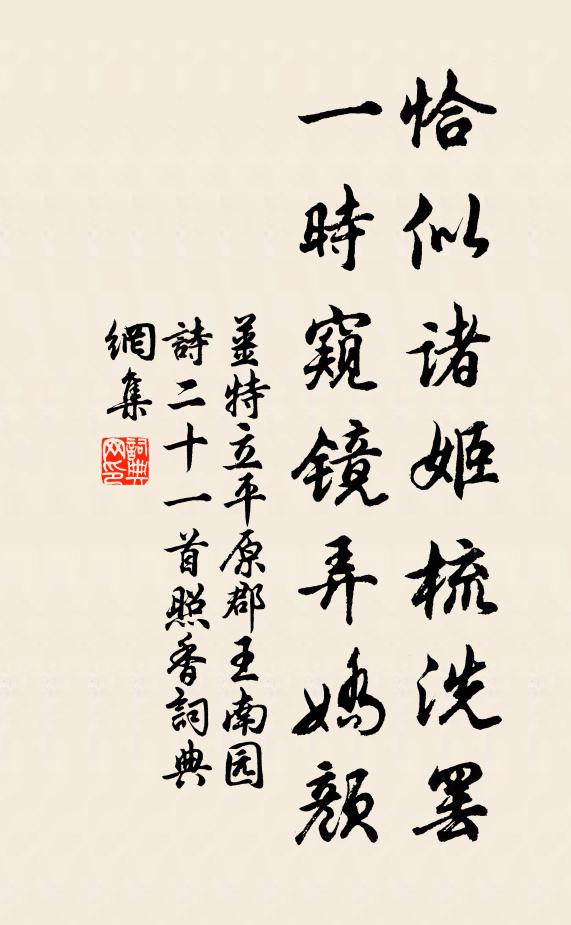 恰似诸姬梳洗罢
一時窺镜弄嬌顏
姜特立平原郡王南园
詩二十一首照香詞典
網集
詞典網印